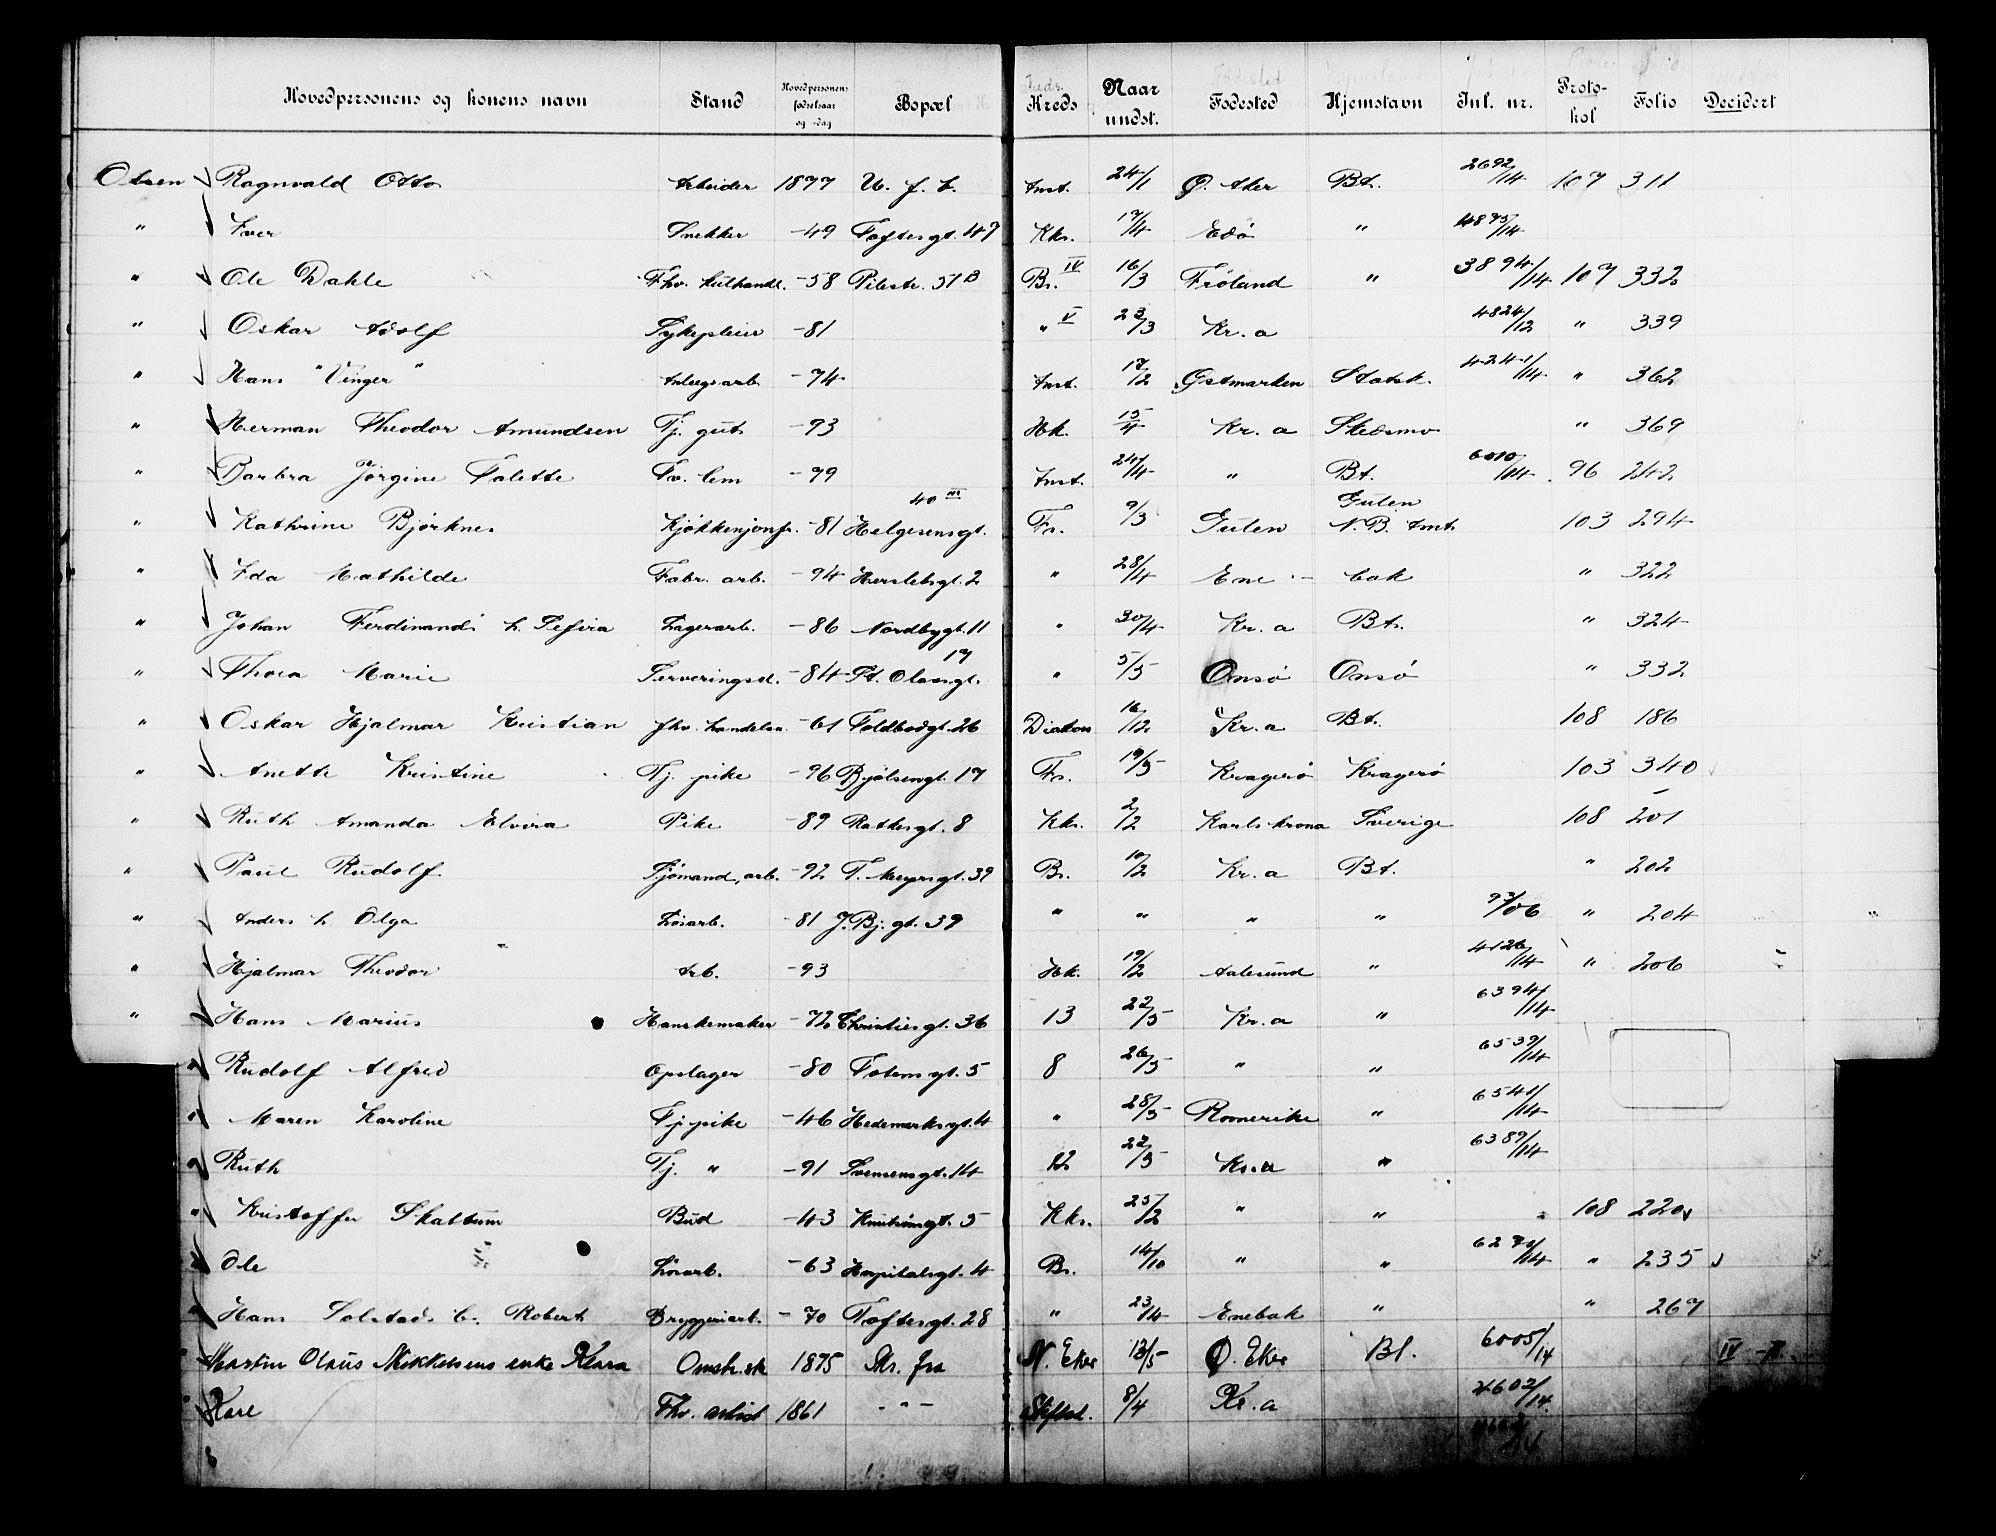 Hovedpersonens og konens navn Stand Hovedpersonens fødselsaar og -dag Bopæl Kreds Naar undst. Fødested Hjemstavn Jul. nr. Protokol Folio Decidert
Olsen Ragnvald Otto Arbeider 1877 U. f. b. Amt. 24/1 Ø. Aker Bt. 2692/14 107 311
" Iver Snekker -49 Toftesgt. 47 Kks. 17/4 Edø " 4875/14
" Ole Dahle Fhv. kulhandl. -58 Pilestr. 57 B Br. IV 16/3 Frøland " 3894/14 107 332
" Oskar Adolf Sykepleier -81 " V 23/3 Kr.a 4824/12 " 339
" Hans "Vinger" Anlegsarb. -74 Amt. 17/2 Østmarken Statsk. 4241/14 " 362
" Herman Theodor Amundsen Tj. gut -93 Hk. 15/4 Kr. a Skedsmo " 369
" Barbra Jørgine Talette Fv. lem -79 Amt. 24/4 " Bt. 6010/14 96 242
" Kathrine Bjørknes Kjøkkenjomfr. -81 Helgesensgt. 40 III Fr. 9/3 Gulen Gulen N. B. Amt 103 294
" Ida Mathilde Fabr. arb. -94 Herslebsgt. 2 " 28/4 Ene - bak " 322
" Johan Ferdinand h. Sefira Lagerarb. -86 Nordbygt. 11 " 30/4 Kr. a Bt. " 324
" Thora Marie Serveringsd. -84 St. Olavsgt. 17 " 5/5 Onsø Onsø " 332
" Oskar Hjalmar Kristian fhv. handelsr. -61 Toldbodgt. 26 Diakon 16/12 Kr. a Bt. 108 186
" Anette Kristine Tj. pike -96 Bjølsengt. 17 Fr. 19/5 Kragerø Kragerø 103 340
" Ruth Amanda Elvira Pike -89 Rathesgt. 8 Kks. 2/2 Karlskrona Sverige 108 201
" Paul Rudolf Sjømand, arb. -92 T. Meyersgt. 39 Br. 10/2 Kr. a Bt. " 202
" Anders h. Olga Løsarb. -81 J. Bj. gt. 39 " " " " 93/06 " 204
" Hjalmar Theodor Arb. -93 Hk. 19/2 Aalesund " 4126/14 " 206
" Hans Marius Hanskemaker -72 Christiesgt. 36 13 22/5 Kr. a " 6394/14
" Rudolf Alfred Opslager -80 Totensgt. 5 8 26/5 " " 6539/14
" Maren Karoline Tj. pike -46 Hedemarksgt. 4 " 28/5 Romerike " 6541/14
" Ruth Tj. " -91 Svensensgt. 14 12 22/5 Kr. a " 6389/14
" Kristoffer Skattum Bud -43 5 Kks. 25/2 " " 108 220
" Ole Løsarb. -63 Hospitalsgt. 4 Br. 14/10 " " 6271/14 " 235
" Hans Solstad b. Robert Bryggeriarb. -70 Toftesgt. 28 " 23/4 Enebak " " 267
Martin Olaus Mikkelsens enke Klara Omstr. sk 1875 Skr. fra N. Eker 13/5 Ø. Eker Bt. 6005/14 IV - II
" Karl Fhv. artist 1861 - " - Stiftsl. 8/4 Kr. a 4602/14